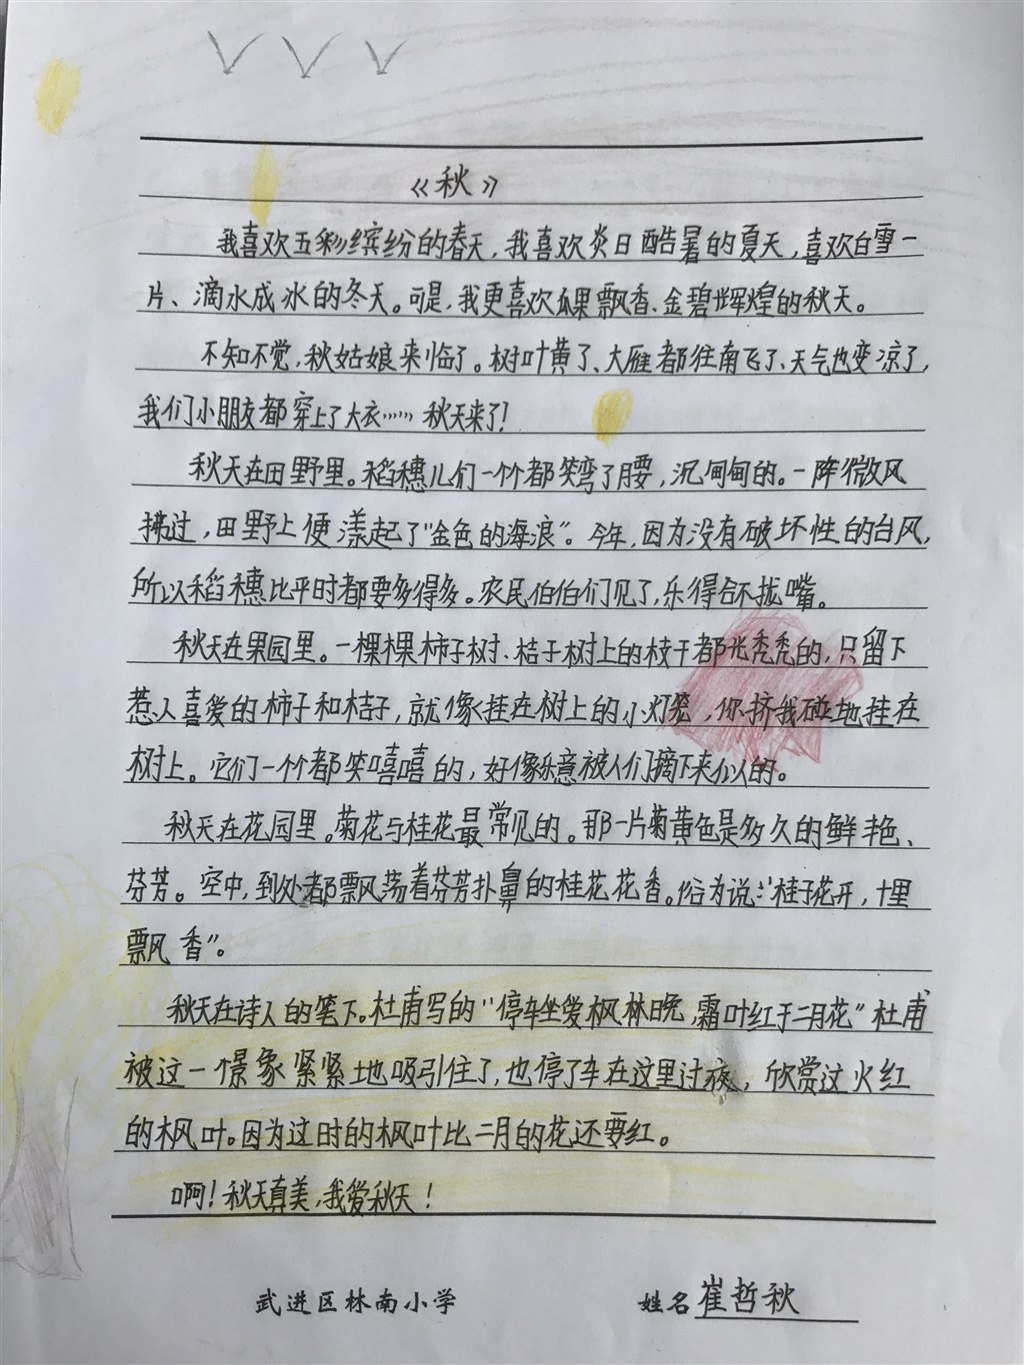 《秋》
我喜欢五彩缤纷的春天,我喜欢炎日酷暑的夏天,喜欢白雪一
片、滴水成冰的冬天。可是,我更喜欢瓜果飘香、金碧辉煌的秋天。
不知不觉,秋姑娘来临了。树叶黄了、大雁都往南飞了、天气也变凉了,
我们小朋友都穿上了大衣……秋天来了!
秋天在田野里。稻穗儿们一个个都笑弯了腰,沉甸甸的。一阵微风
拂过,田野上便漾起了“金色的海浪”。今年,因为没有破坏性的台风,
所以稻穗比平时都要多得多。农民伯伯们见了,乐得合不拢嘴。
秋天在果园里。一棵棵柿子树、桔子树上的枝干都光秃秃的,只留下
惹人喜爱的柿子和桔子,就像挂在树上的小灯笼,你挤我碰地挂在
树上。它们一个个都笑嘻嘻的,好像乐意被人们摘下来似的。
秋天在花园里。菊花与桂花最常见的。那一片菊黄色是多久的鲜艳、
芬芳。空中,到处都飘荡着芬芳扑鼻的桂花花香。俗为说:“桂子花开,十里
飘香”。
秋天在诗人的笔下。杜甫写的“停车坐爱枫林晚,霜叶红于二月花”杜甫
被这一个景象紧紧地吸引住了,也停了车在这里过夜,欣赏这火红
的枫叶。因为这时的枫叶比二月的花还要红。
啊!秋天真美,我爱秋天!
武进区林南小学 姓名崔哲秋